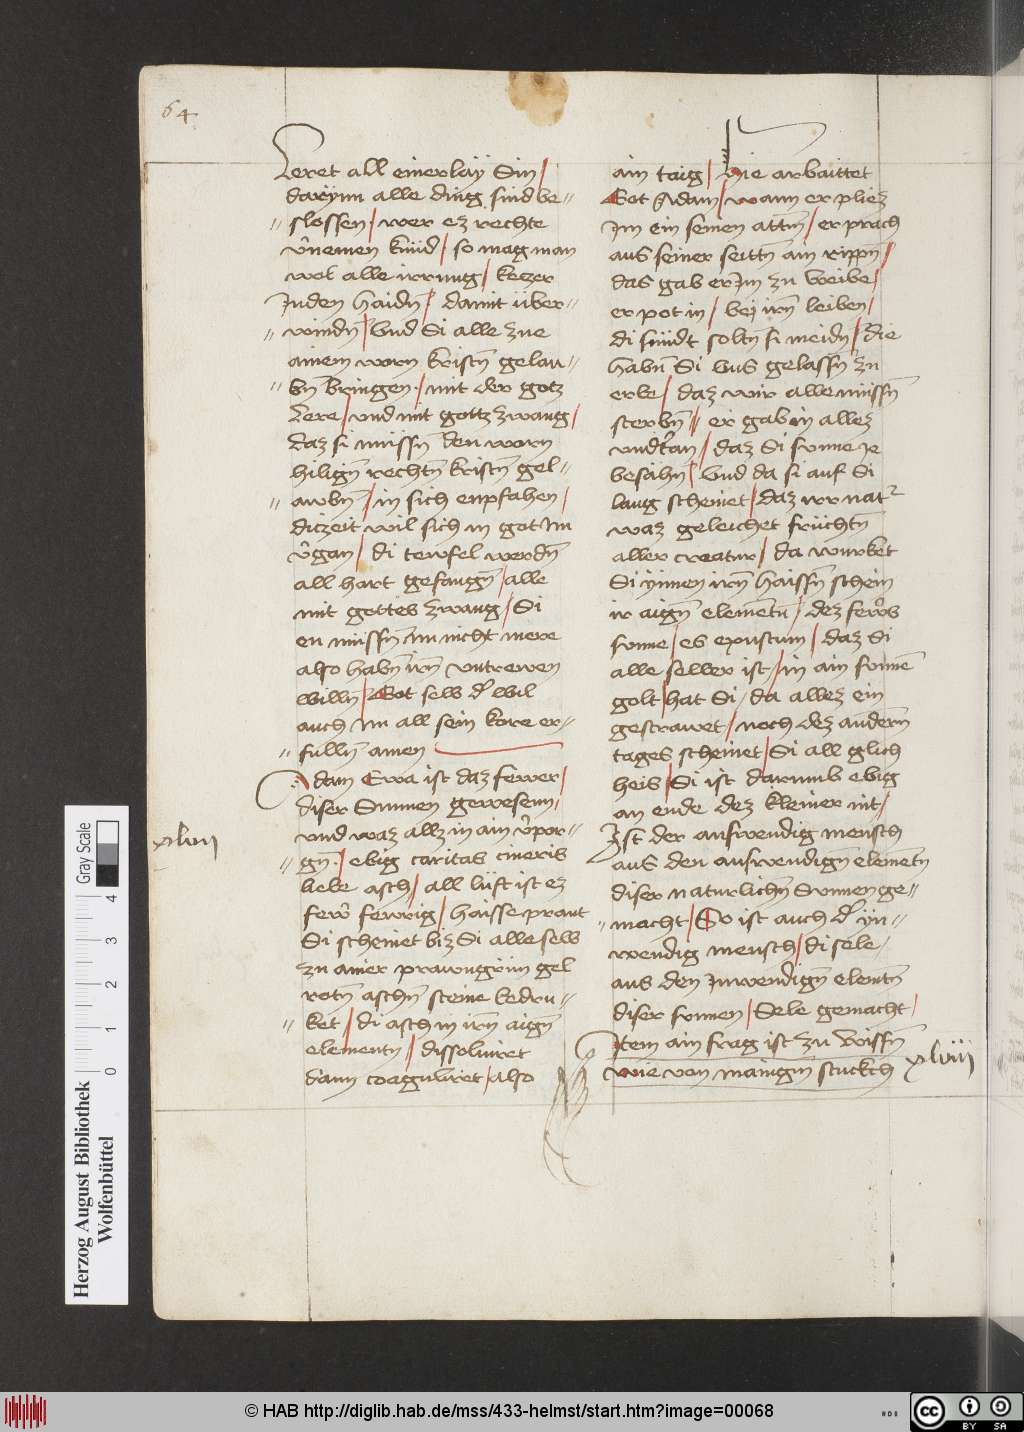 64
Leret all einerlay Sin /
darynn alle ding sind be=
= slossen / wer ez rechte
v̉nemen kund / so mag man
wol alle irrung / keczer
Juden haidn̄ / damit über=
= windn̄ / Vnd Si alle zue
ainem worn kristn̄ gelau=
= bn̄ bringen / mit der gotz
Lere / vnd mit gottz zwang /
daz si müssn̄ den worn
hilign̄ rechtn̄ kristn̄ gel=
= awbn̄ / in sich enpfahen /
diczeit wil sich in got Im
v̉gan / di tewfel werdn̄
all hart gefangn̄ / alle
mit gottes zwang / Si
en müssn̄ im nicht mere
also habn̄ irn̄ vntrewen
willn̄ / Got selb d̉ wil
auch Im all sein kore er=
= fulln̄ amen
Adam Ewa ist daz fewer /
diser Sunnen gewesenn /
vnd waz allz in ain v̉por=
= gn̄ / ebig caritas cineris
liebe asch / all lüft ist ez
fewr̉ fewrig / haisse prant
Si scheinet biz Si alle selb
zu ainer prawngrün gel
rotn̄ aschn̄ steine bedru=
= ket / di asch in irn̄ aign̄
elementn / dissoluiret
dann coaguliret / also
xlvii
ain taig / Hie arbaittet
Got Adam / wann er pliez
Im ein seinen attm̄ / er prach
aus seiner seittn̄ ain rippn̄ /
das gab er Im zu Weibe /
er pot in / bej irn̄ leiben /
di sündt soltn̄ si meidn̄ / die
habn̄ Si vns gelassn̄ zu
erbe / daz wir alle müssn̄
sterbn̄ / er gab in allez
vndt̉an / daz Si sunne ie
besahn̄ / Vnd da si auf Si
lang scheinet / daz irr nat²
waz geleichet früchtn̄
aller creatur / da wurket
Si ynnen irn̄ haissn̄ schein
ir aign̄ elementn̄ / dez fewr̉s
sunne / es expustum / daz Si
alle selber ist / in ain sunne
golt / hat Si / da allez ein
gestrawet / noch dez andern̄
tages scheinet / Si all glich
heis / Si ist darumb ebig
an ende dez kleiner nit /
Ist der auswendig mensch
aus den auswendign̄ elemētn̄
diser naturlichn̄ Sunnen ge=
= macht / So ist auch d̉ yn=
wendig mensch / di sele /
aus den Inwendign̄ elemtn̄
diser sunnen / Sele gemacht /
Item ain frag ist zu Wissn̄
wie von mainign̄ stuckch
xlviii
Herzog August Bibliothek
Wolfenbüttel
Gray Scale
0 1 2 3 4
© HAB http://diglib.hab.de/mss/433-helmst/start.htm?image=00068
cc BY SA